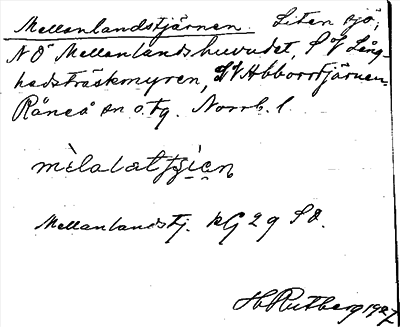 Mellanlandstjärnen. Liten sjö,
N Ö Mellanlandshuvudet, S V Lång-
hedsträskmyren, S V Abborrtjärnen.
Råneå sn o. tg. Norrb. l.
Mellanlandstj. kG 29 SO.
H Rutberg 1927